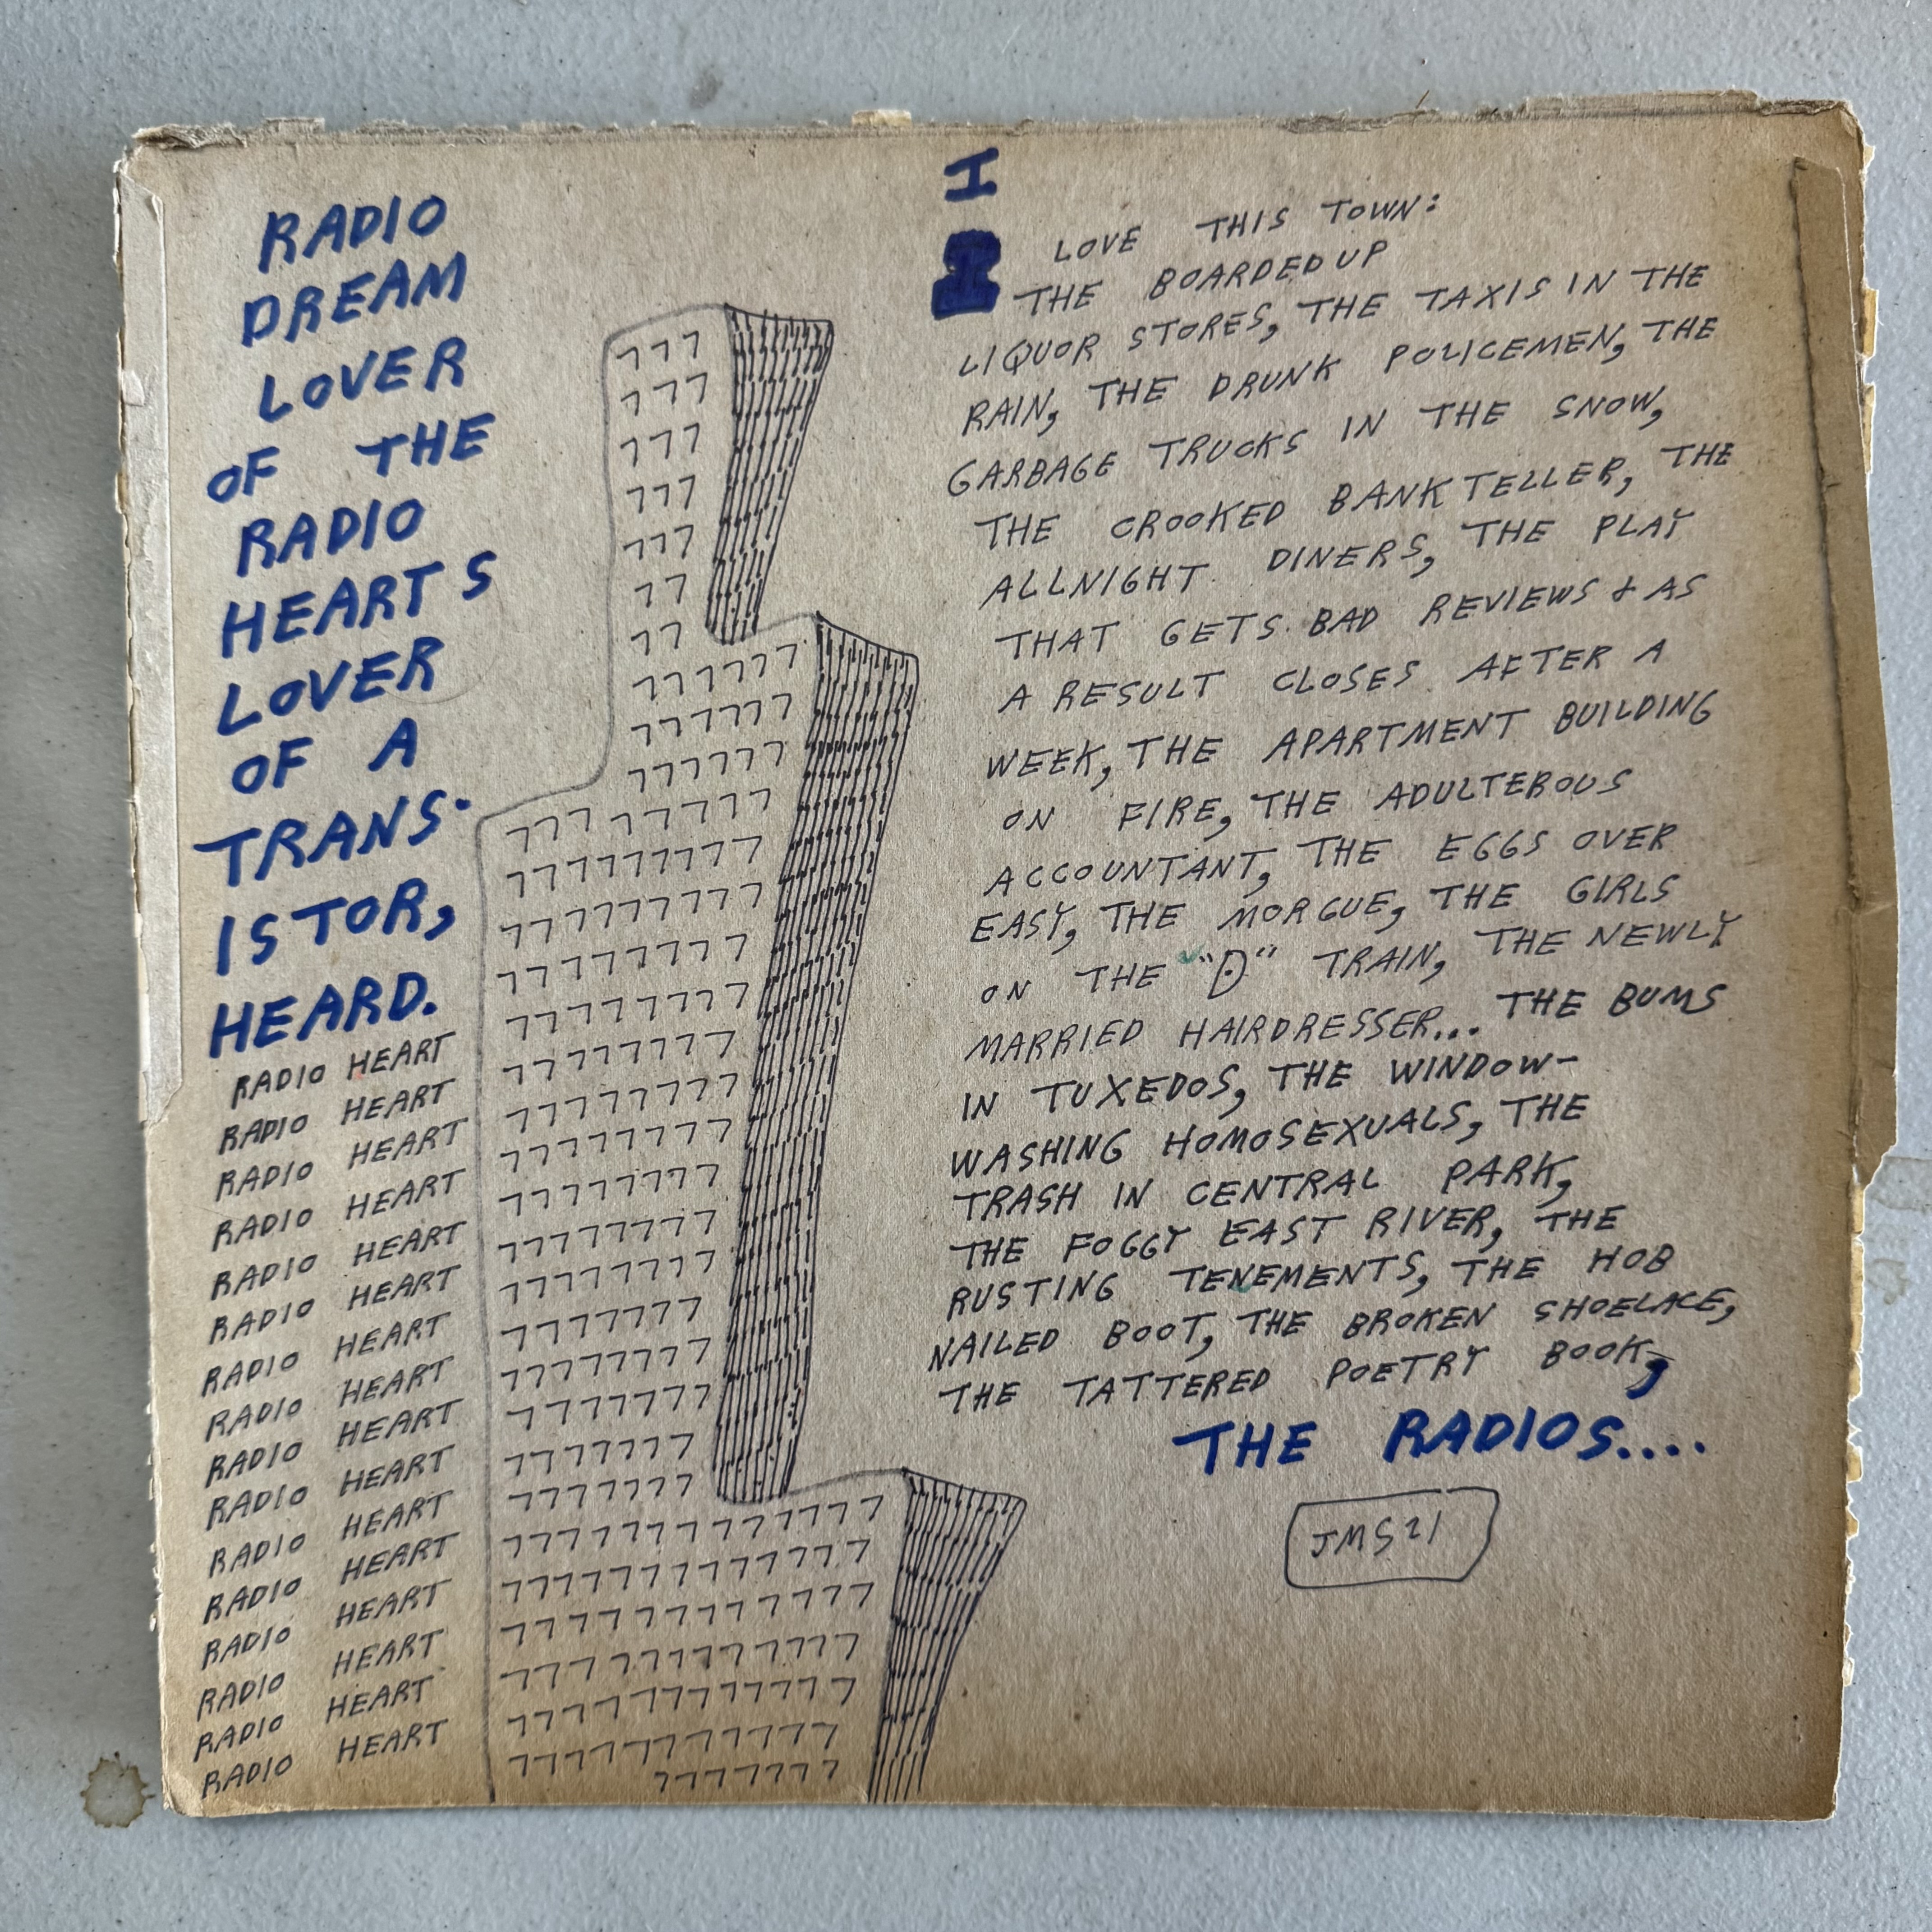 RADIO
DREAM
LOVER
OF THE
RADIO
HEARTS
LOVER
OF A
TRANS-
ISTOR,
HEARD.
RADIO HEART
RADIO HEART
RADIO HEART
RADIO HEART
RADIO HEART
RADIO HEART
RADIO HEART
RADIO HEART
RADIO HEART
RADIO HEART
RADIO HEART
RADIO HEART
RADIO HEART
RADIO HEART
RADIO HEART
RADIO HEART
I
LOVE THIS TOWN:
THE BOARDED UP
LIQUOR STORES, THE TAXIS IN THE
RAIN, THE DRUNK POLICEMEN, THE
GARBAGE TRUCKS IN THE SNOW,
THE CROOKED BANK TELLER, THE
ALLNIGHT DINERS, THE PLAY
THAT GETS BAD REVIEWS & AS
A RESULT CLOSES AFTER A
WEEK, THE APARTMENT BUILDING
ON FIRE, THE ADULTEROUS
ACCOUNTANT, THE EGGS OVER
EASY, THE MORGUE, THE GIRLS
ON THE "D" TRAIN, THE NEWLY
MARRIED HAIRDRESSER... THE BUMS
IN TUXEDOS, THE WINDOW-
WASHING HOMOSEXUALS, THE
TRASH IN CENTRAL PARK,
THE FOGGY EAST RIVER, THE
RUSTING TENEMENTS, THE HOB
NAILED BOOT, THE BROKEN SHOELACE,
THE TATTERED POETRY BOOK,
THE RADIOS....
JMS21